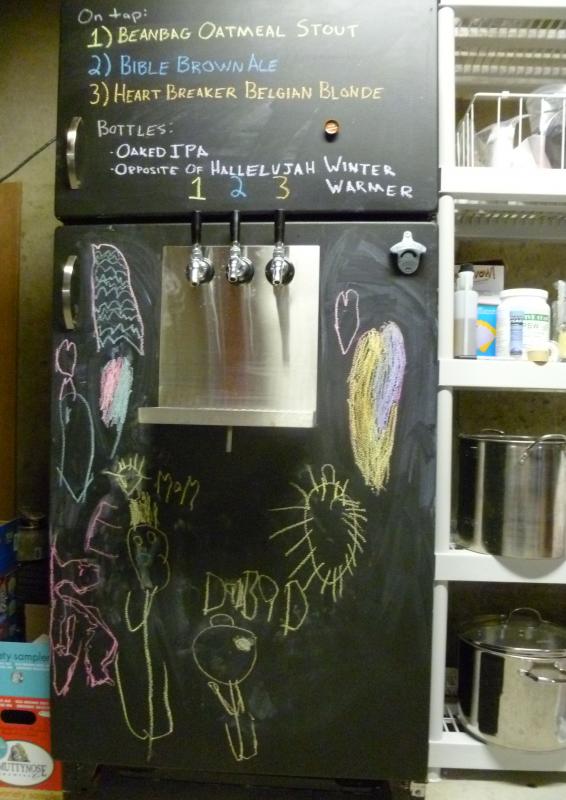 On tap:
1) BEANBAG OATMEAL STOUT
2) BIBLE BROWN ALE
3) HEART BREAKER BELGIAN BLONDE
BOTTLES:
- OAKED IPA
- OPPOSITE OF HALLELUJAH WINTER
WARMER
1 2 3
MOM
ety sampler
MUTTYNOSE